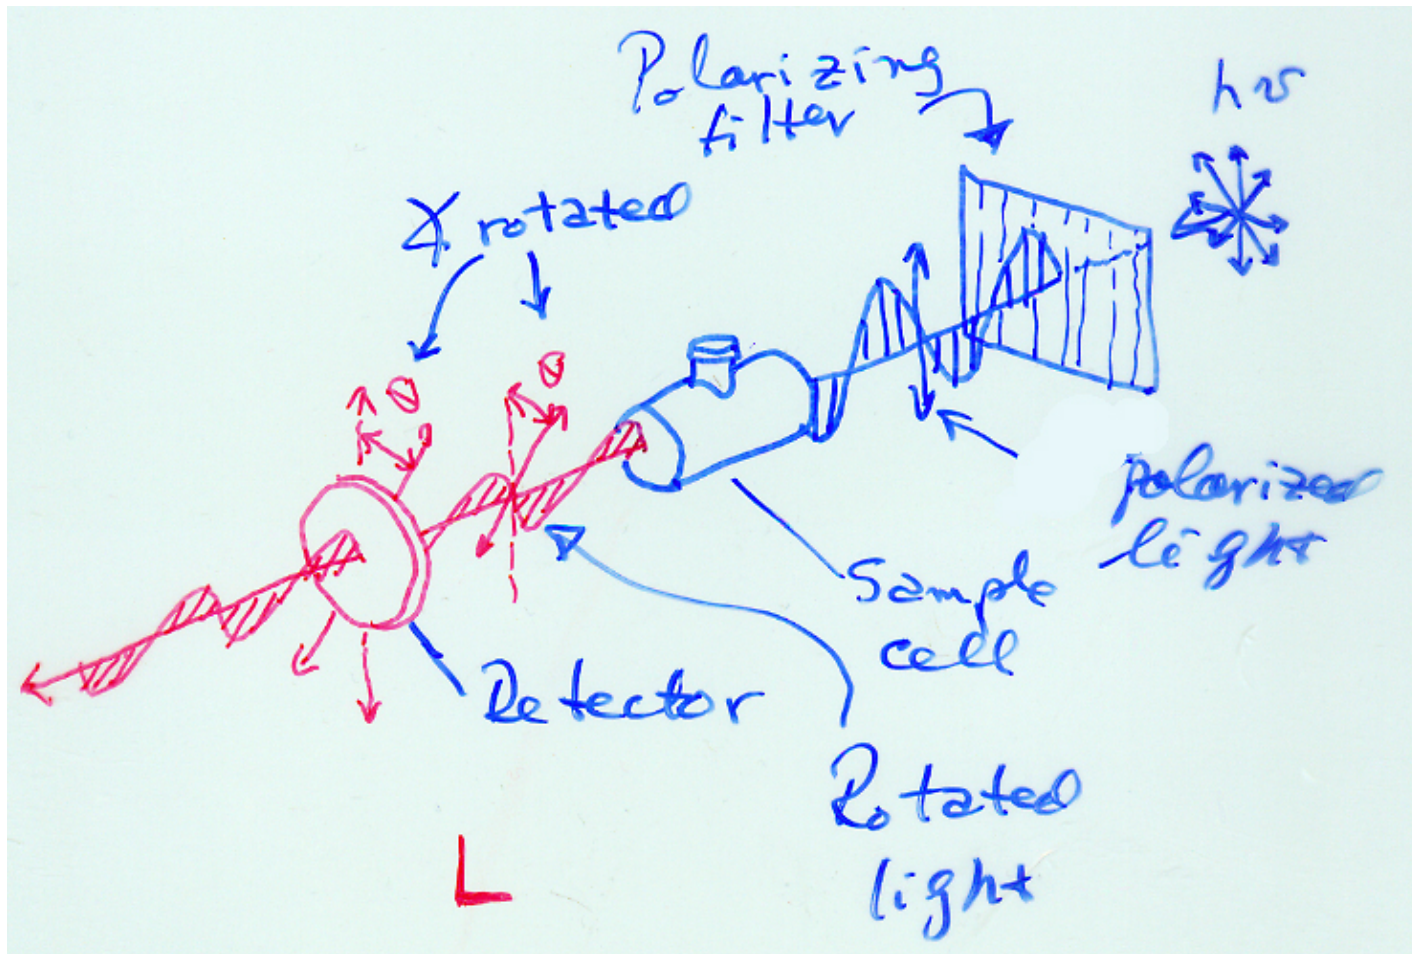 Polarizing
filter
hν
∡ rotated
θ
θ
polarized
light
Sample
cell
Detector
Rotated
light
L